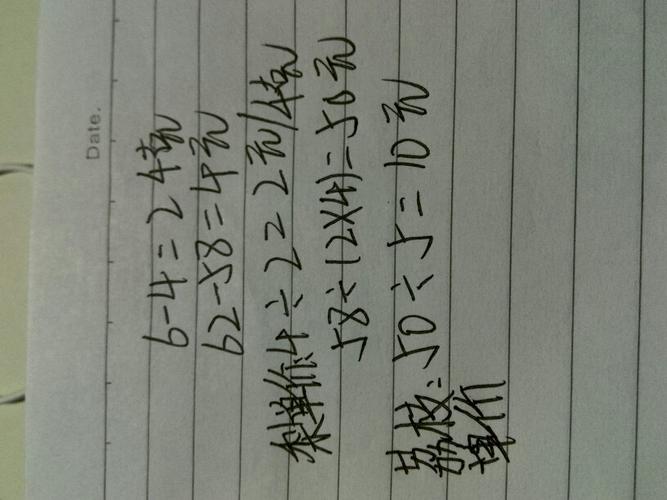 Date.
6-4=2千克
62-58=4元
梨单价:4÷2=2元/千克
58÷(2×4)=50元
荔枝单价:50÷5=10元